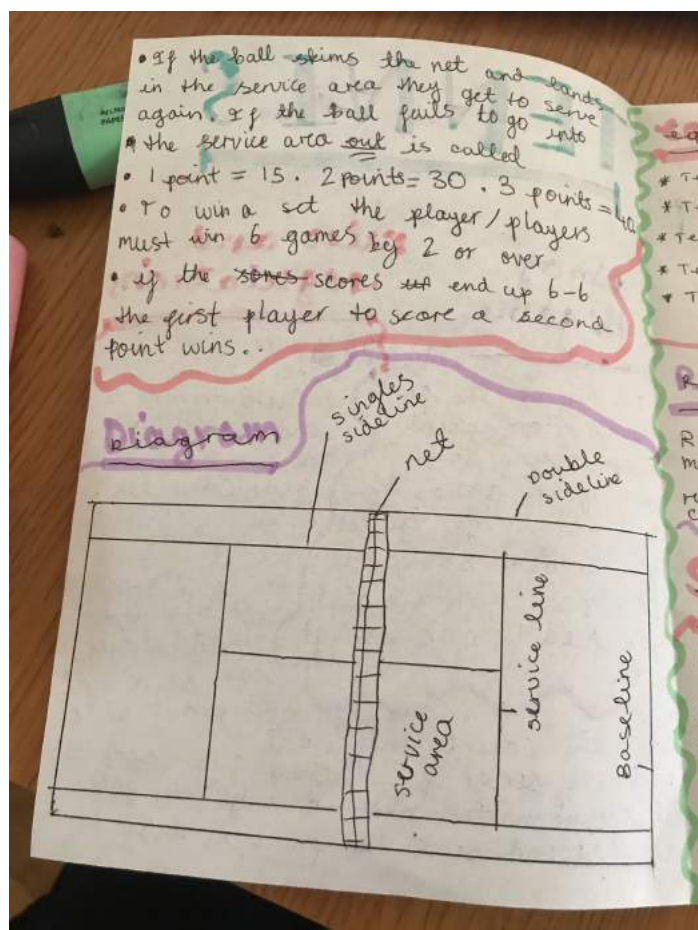 • If the ball skims the net and lands
in the service area they get to serve
again. If the ball fails to go into
• the service area out is called
• 1 point = 15 • 2 points = 30 • 3 points = 40
• To win a set the player/players
must win 6 games by 2 or over
• if the scores end up 6-6
the first player to score a second
point wins..
Diagram
singles
sideline
net
Double
sideline
service
area
service line
Baseline